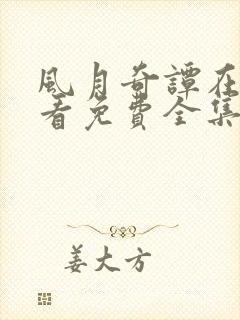 風月奇譚在
看免費全集
姜大方